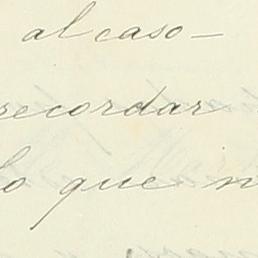 al caso —
recordar
lo que n